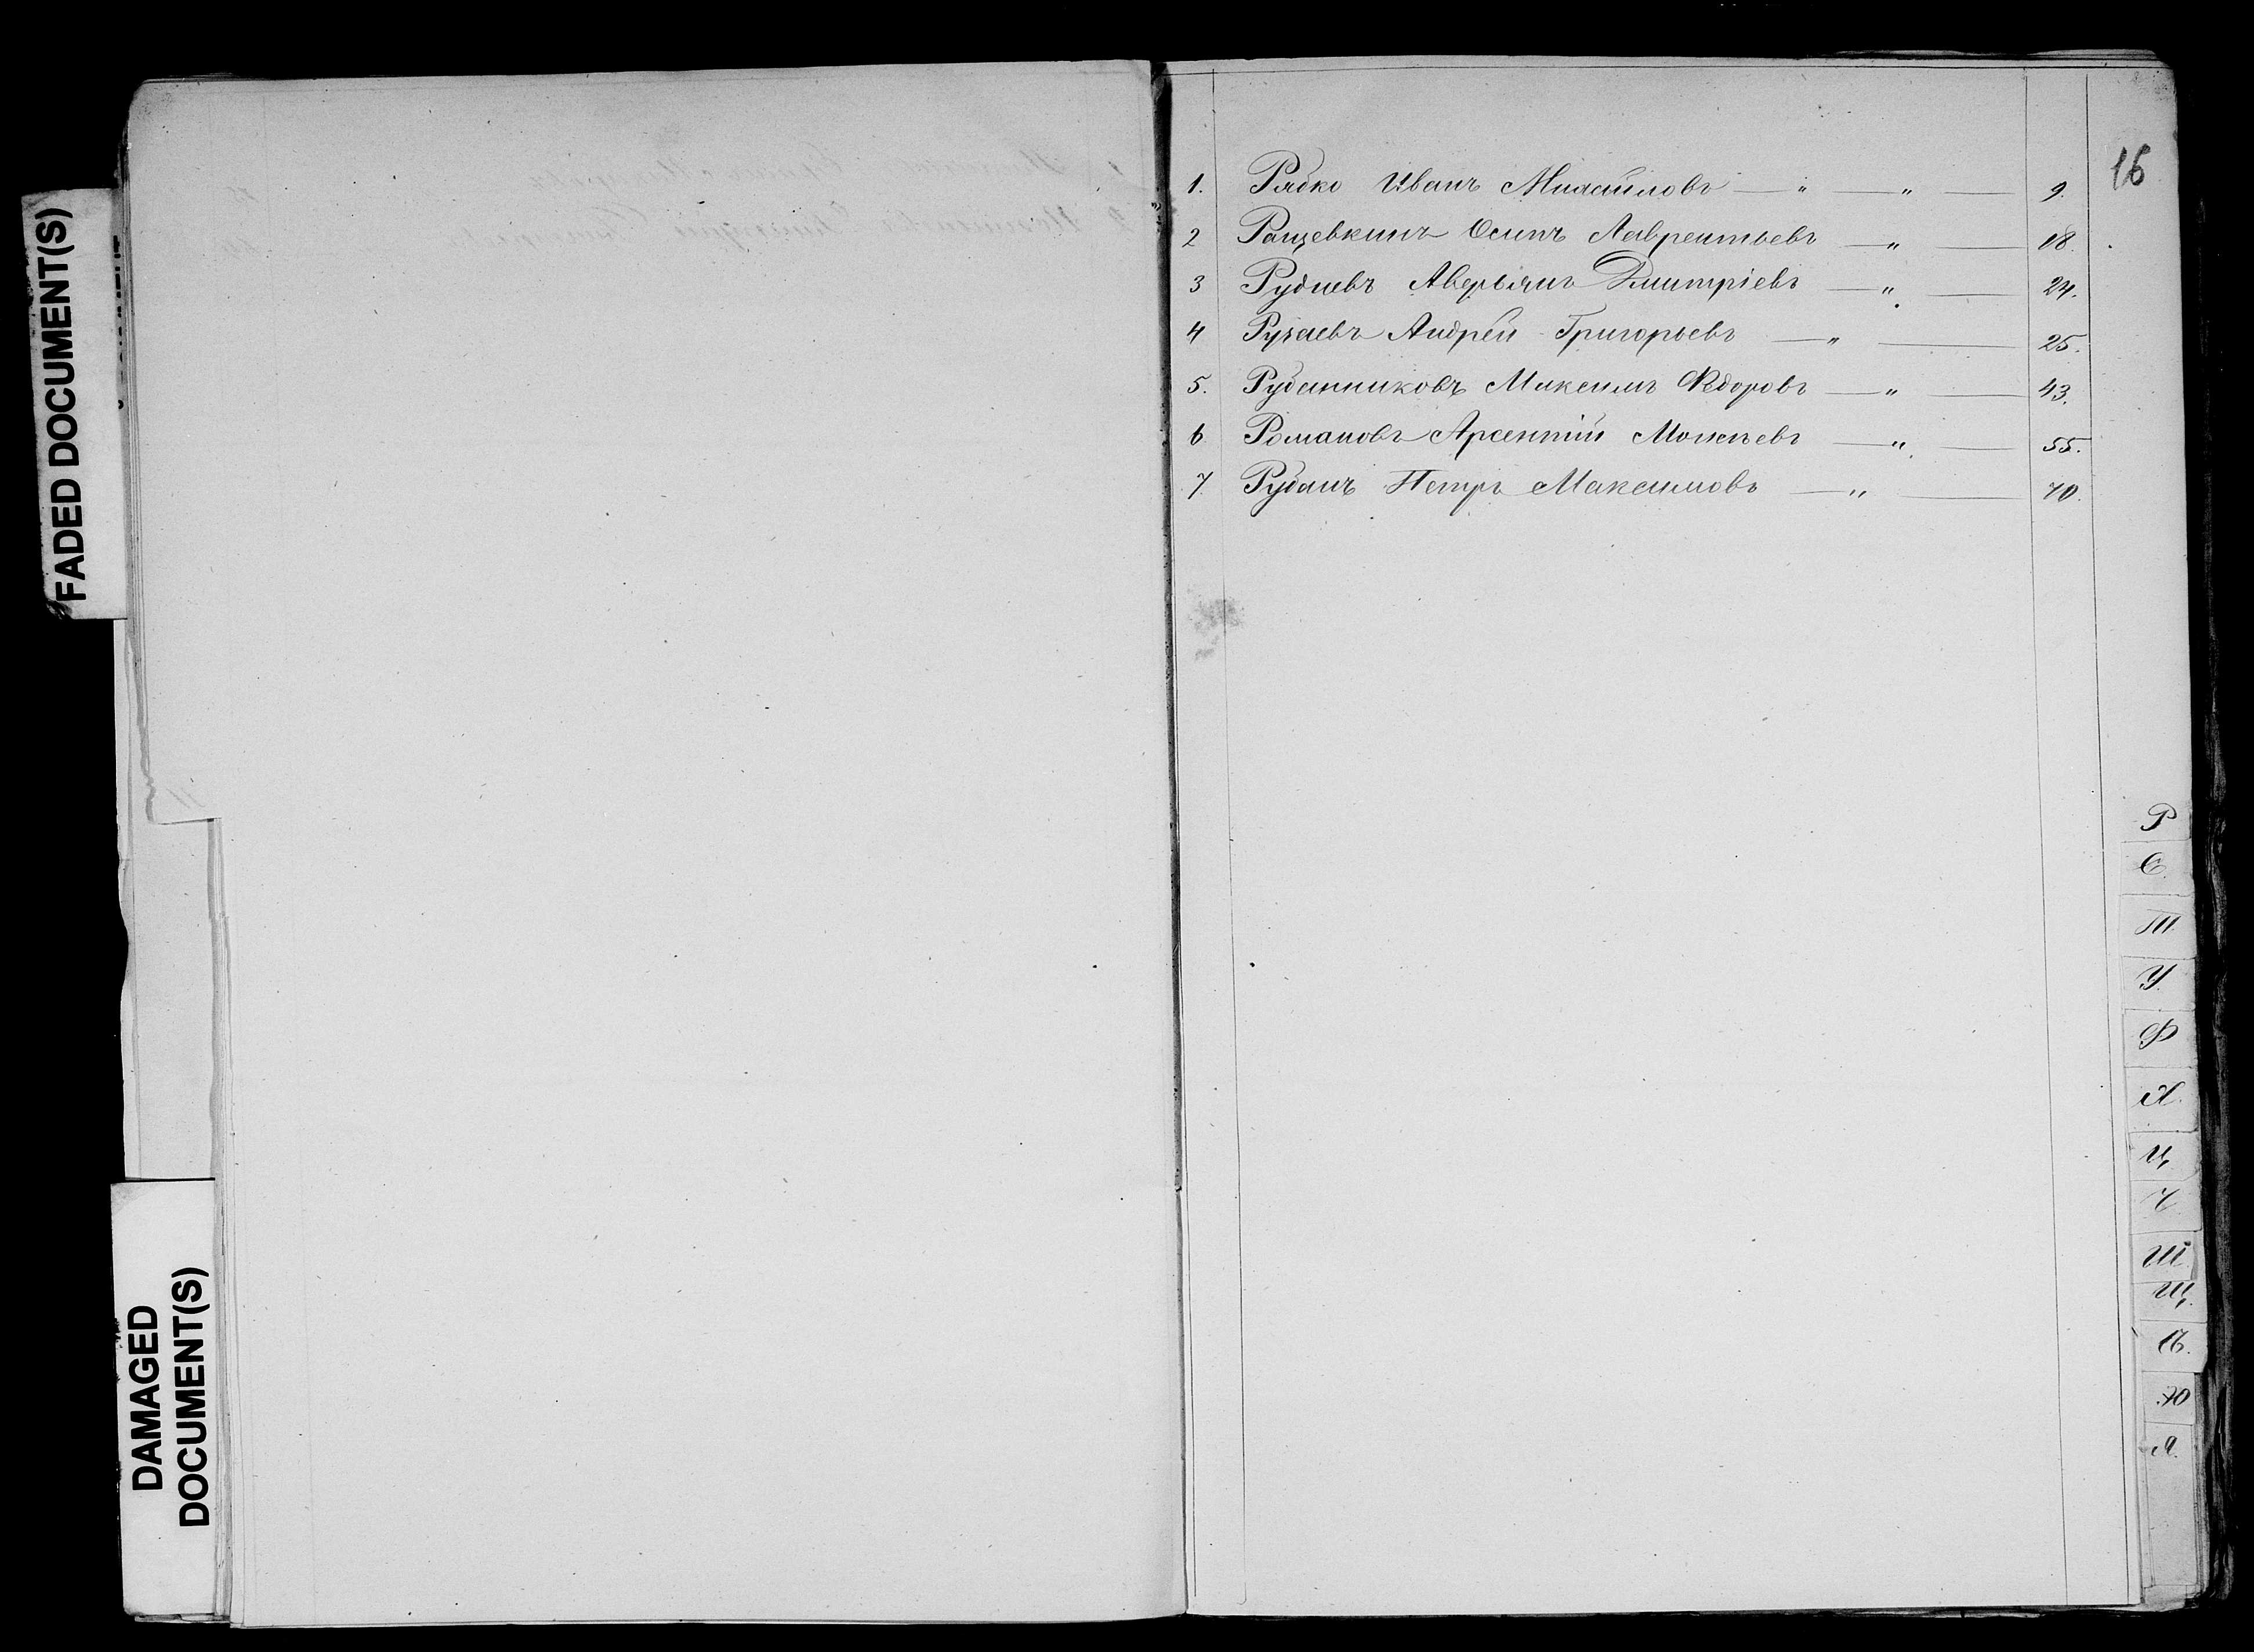 FADED DOCUMENT(S)
DAMAGED
DOCUMENT(S)
16
1. Рябко Иванъ Михайловъ — " — " — 9.
2 Ращевкинъ Осипъ Лаврентьевъ — " — 18.
3 Рудневъ Аверьянъ Дмитріевъ — " — 24.
4 Ругаевъ Андрей Григорьевъ — " — 25.
5. Рубанниковъ Максимъ Ѳедоровъ — " — 43.
6 Романовъ Арсентій Моисѣевъ — " — 55.
7. Рубанъ Петръ Максимовъ — " — 70.
Р
С.
Т
У.
Ф
Х.
Ц
Ч
Ш
Щ.
Ю
Я.